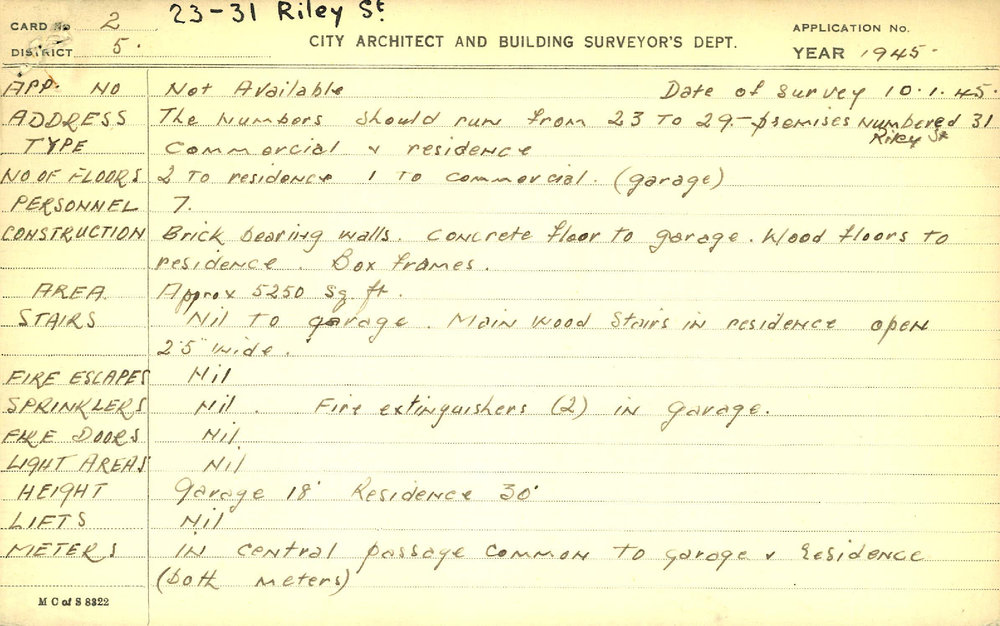 23-31 Riley St
CARD No 2
DISTRICT 5.
CITY ARCHITECT AND BUILDING SURVEYOR'S DEPT.
APPLICATION No.
YEAR 1945.
APP. NO Not Available Date of Survey 10.1.45.
ADDRESS The numbers should run from 23 to 29 - premises numbered 31 Riley St
TYPE Commercial & residence
NO OF FLOORS 2 to residence 1 to commercial. (garage)
PERSONNEL 7.
CONSTRUCTION Brick bearing walls. Concrete floor to garage. Wood floors to
residence. Box frames.
AREA Approx 5250 Sq. ft.
STAIRS Nil to garage. Main wood stairs in residence open
2'5" wide.
FIRE ESCAPES Nil
SPRINKLERS Nil. Fire extinguishers (2) in garage.
FIRE DOORS Nil
LIGHT AREAS Nil
HEIGHT Garage 18' Residence 30'
LIFTS Nil
METERS in central passage common to garage & residence
(both meters)
M C of S 8322